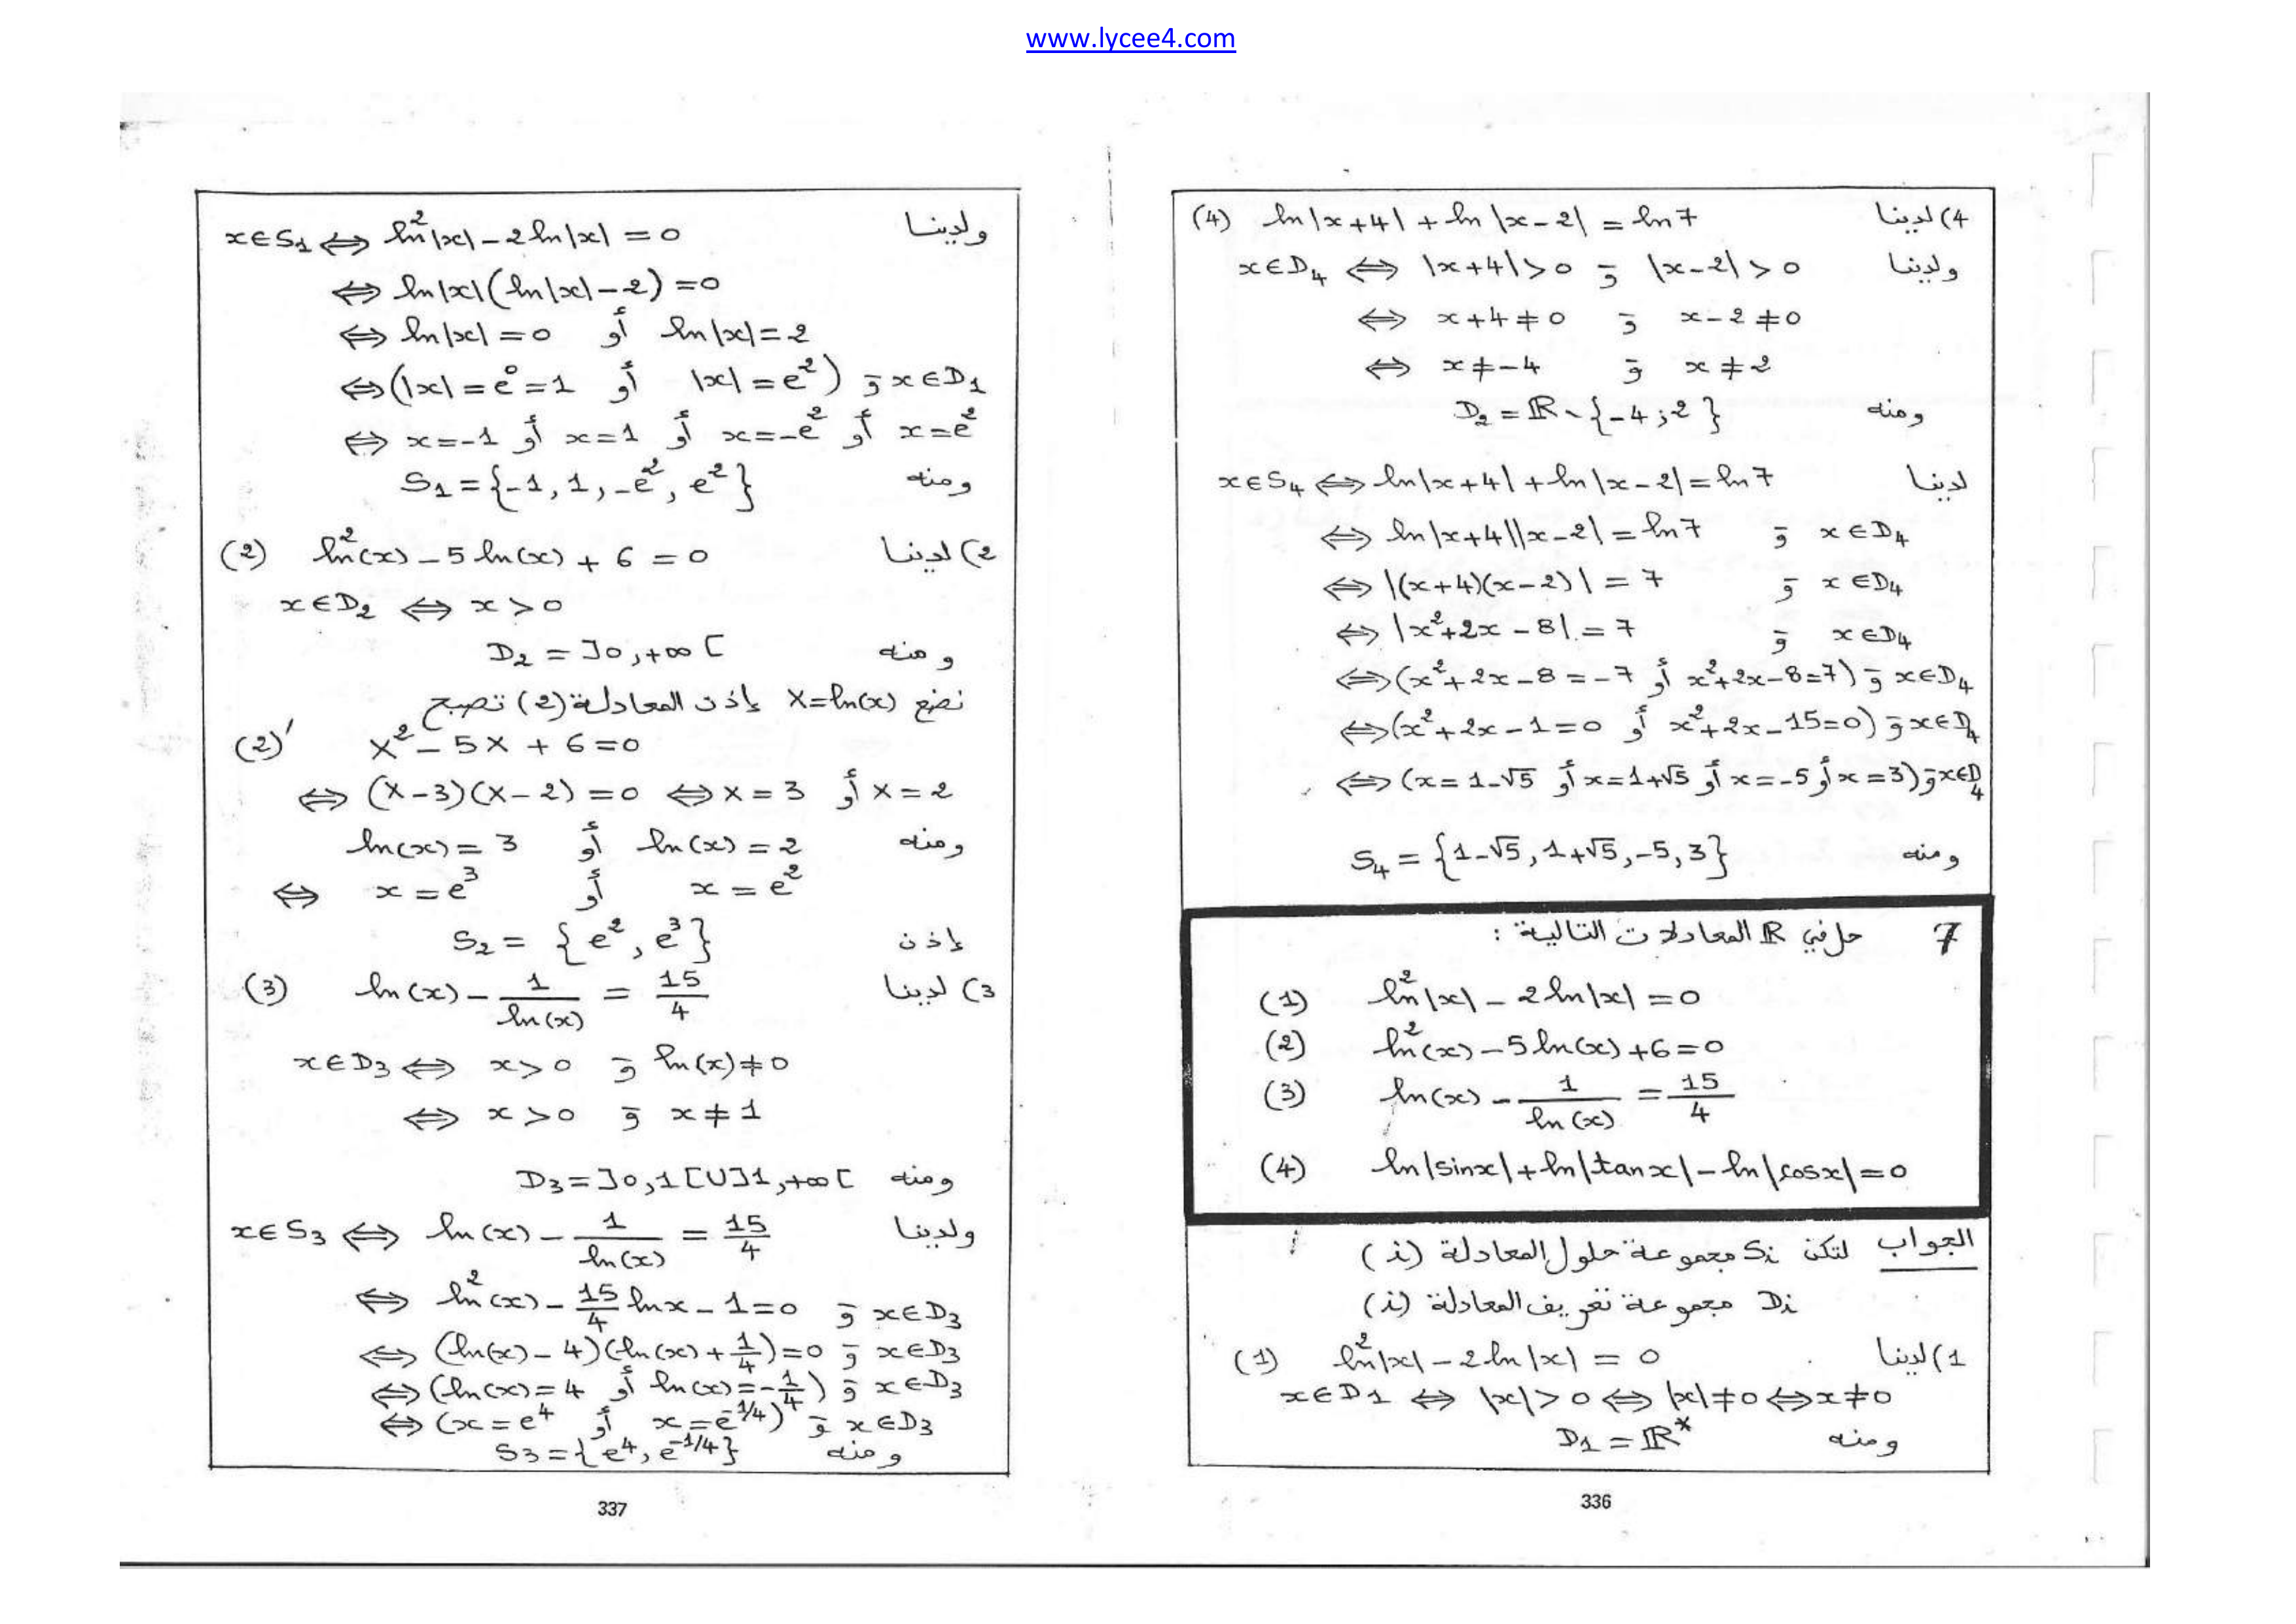 www.lycee4.com
4) لدينا (4) ln|x+4| + ln|x-2| = ln7
ولدينا x∈D₄ ⟺ |x+4|>0 و |x-2|>0
⟺ x+4≠0 و x-2≠0
⟺ x≠-4 و x≠2
ومنه D₂ = ℝ∖{-4;2}
لدينا x∈S₄ ⟺ ln|x+4| + ln|x-2| = ln7
⟺ ln|x+4||x-2| = ln7 و x∈D₄
⟺ |(x+4)(x-2)| = 7 و x∈D₄
⟺ |x²+2x-8| = 7 و x∈D₄
⟺ (x²+2x-8=-7 أو x²+2x-8=7) و x∈D₄
⟺ (x²+2x-1=0 أو x²+2x-15=0) و x∈D₄
⟺ (x=1-√5 أو x=1+√5 أو x=-5 أو x=3) و x∈D₄
ومنه S₄ = {1-√5, 1+√5, -5, 3}
7 حل في ℝ المعادلات التالية :
(1) ln²|x| - 2ln|x| = 0
(2) ln²(x) - 5ln(x) + 6 = 0
(3) ln(x) - 1/ln(x) = 15/4
(4) ln|sinx| + ln|tanx| - ln|cosx| = 0
الجواب لتكن Si مجموعة حلول المعادلة (i)
Di مجموعة تعريف المعادلة (i)
1) لدينا (1) ln²|x| - 2ln|x| = 0
x∈D₁ ⟺ |x|>0 ⟺ |x|≠0 ⟺ x≠0
ومنه D₁ = ℝ*
336
ولدينا x∈S₁ ⟺ ln²|x| - 2ln|x| = 0
⟺ ln|x|(ln|x|-2) = 0
⟺ ln|x| = 0 أو ln|x| = 2
⟺ (|x| = e⁰ = 1 أو |x| = e²) و x∈D₁
⟺ x=-1 أو x=1 أو x=-e² أو x=e²
ومنه S₁ = {-1, 1, -e², e²}
2) لدينا (2) ln²(x) - 5ln(x) + 6 = 0
x∈D₂ ⟺ x>0
ومنه D₂ = ]0,+∞[
نضع X=ln(x) إذن المعادلة (2) تصبح
(2)' X² - 5X + 6 = 0
⟺ (X-3)(X-2) = 0 ⟺ X=3 أو X=2
ومنه ln(x) = 3 أو ln(x) = 2
⟺ x = e³ أو x = e²
إذن S₂ = {e², e³}
3) لدينا (3) ln(x) - 1/ln(x) = 15/4
x∈D₃ ⟺ x>0 و ln(x)≠0
⟺ x>0 و x≠1
ومنه D₃ = ]0,1[U]1,+∞[
ولدينا x∈S₃ ⟺ ln(x) - 1/ln(x) = 15/4
⟺ ln²(x) - 15/4 lnx - 1 = 0 و x∈D₃
⟺ (ln(x)-4)(ln(x)+1/4) = 0 و x∈D₃
⟺ (ln(x)=4 أو ln(x)=-1/4) و x∈D₃
⟺ (x=e⁴ أو x=e^-1/4) و x∈D₃
ومنه S₃ = {e⁴, e^-1/4}
337